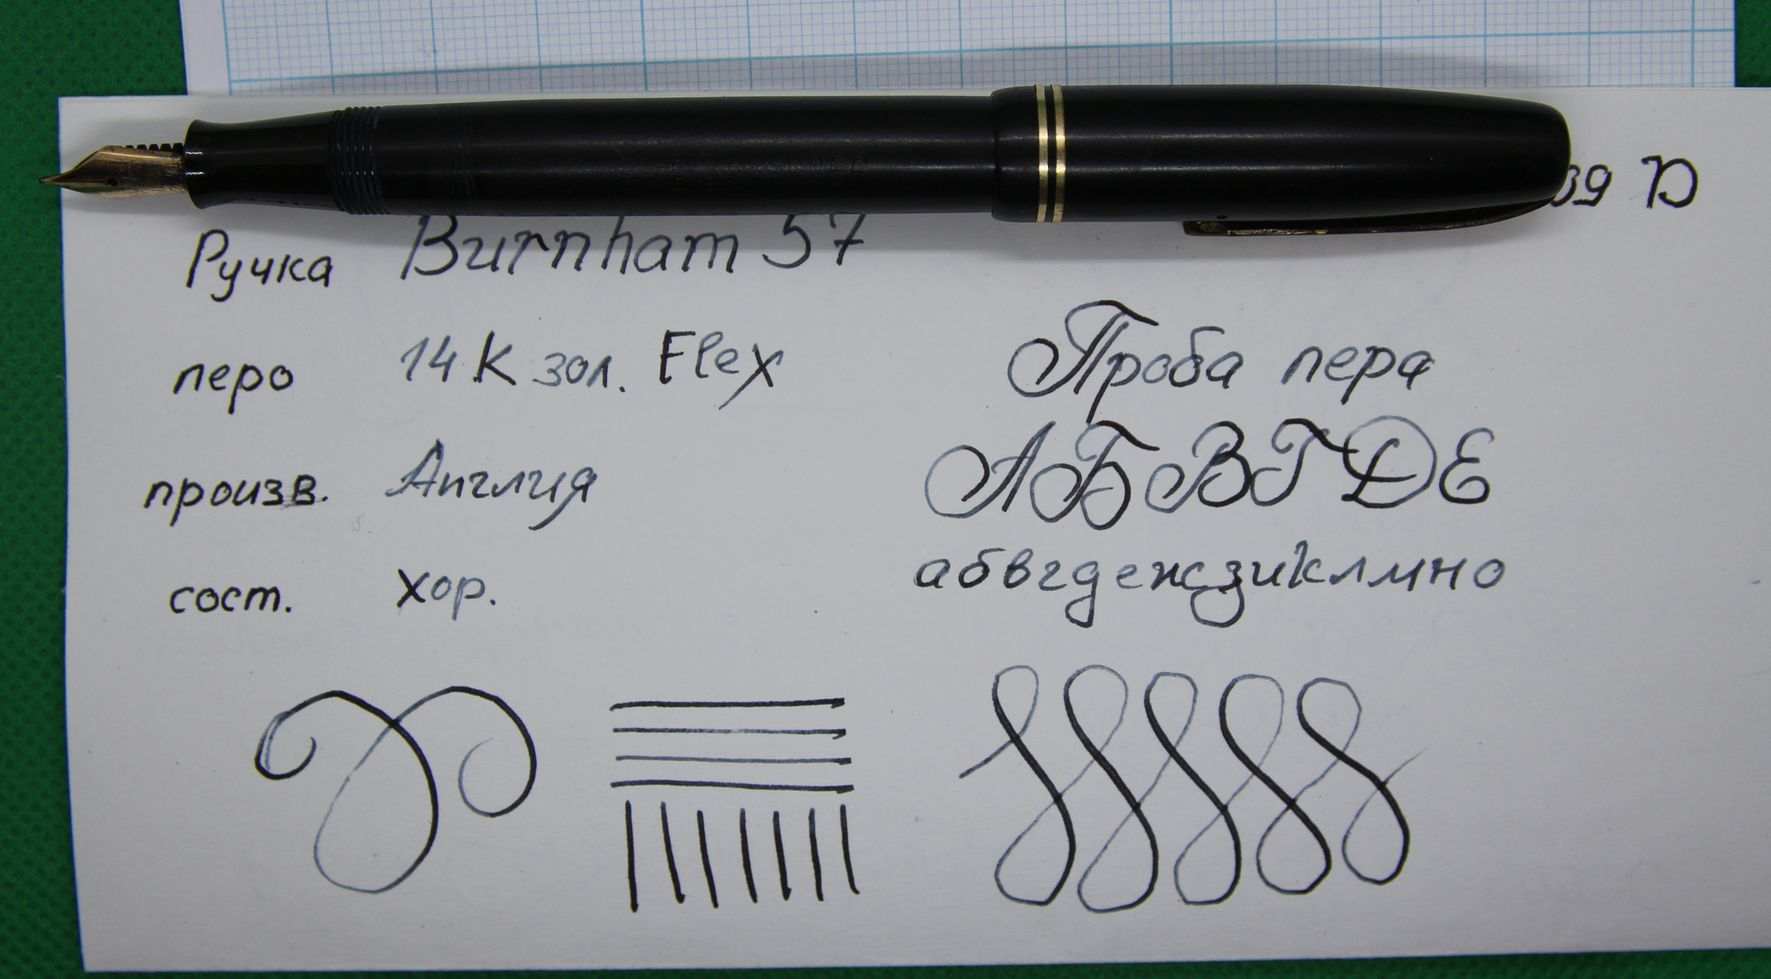 Ручка Burnham 57
перо 14К зол. Flex
произв. Англия
сост. хор.
Проба пера
АБВГДЕ
абвгдежзиклмно